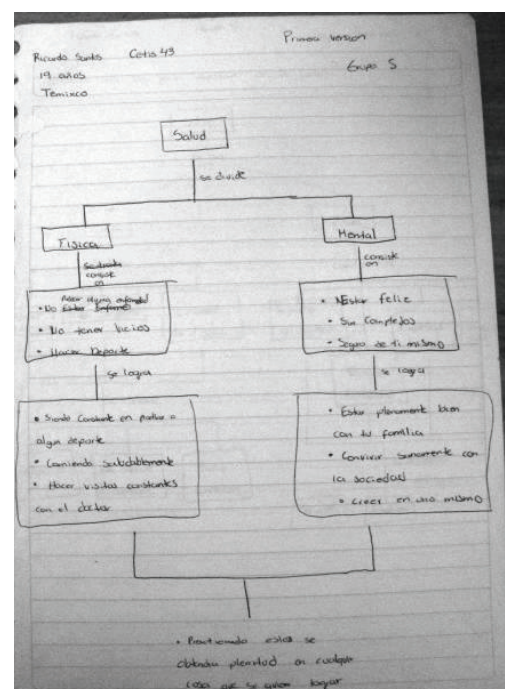 Primera Version
Ricardo Santos Cetis 43
19 años
Grupo 5
Temixco
Salud
se divide
Fisica
Mental
consiste
en
consiste
en
Tener alguna enfermedad
• No Estar Enfermo
• No tener vicios
• Hacer Deporte
• Estar felie
• Sin Complejos
• Seguro de ti mismo
se logra
se logra
• Siendo Constante en practicar
algun deporte
• Comiendo saludablemente
• Hacer visitas constantes
con el doctor
• Estar plenamente bien
con tu familia
• Convivir sanamente con
la sociedad
• Creer en uno mismo
• Practicando estos se
obtendra plenitud en cualquier
cosa que se quiera lograr